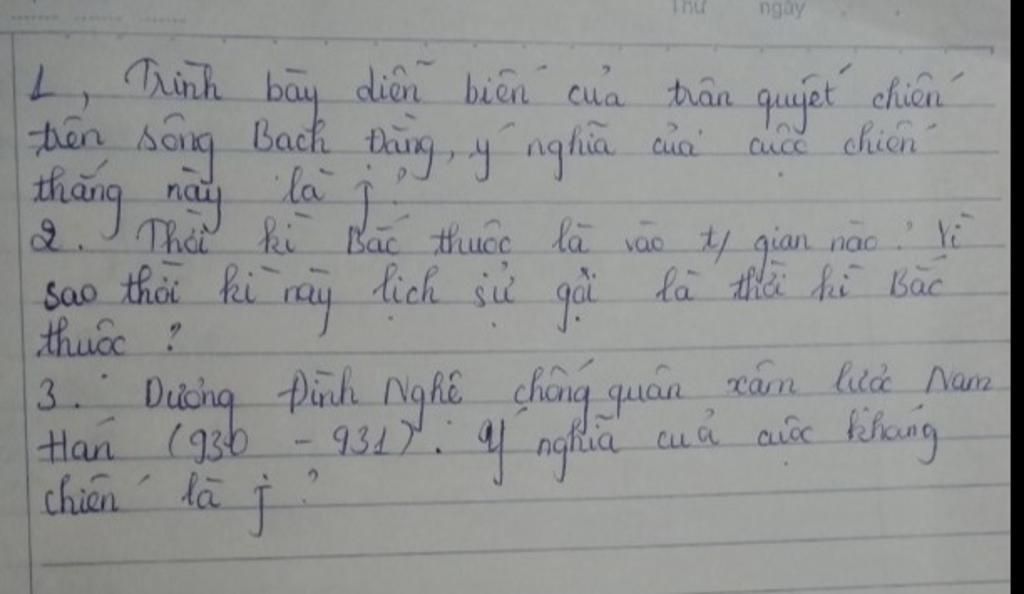 Thứ ngày
1, Trình bày diễn biến của trận quyết chiến
trên sông Bạch Đằng, ý nghĩa của cuộc chiến
thắng này là j?
2. Thời kì Bắc thuộc là vào t/gian nào? Vì
sao thời kì này lịch sử gọi là thời kì Bắc
thuộc?
3. Dương Đình Nghệ chống quân xâm lược Nam
Hán (930 - 931). Ý nghĩa của cuộc kháng
chiến là j?